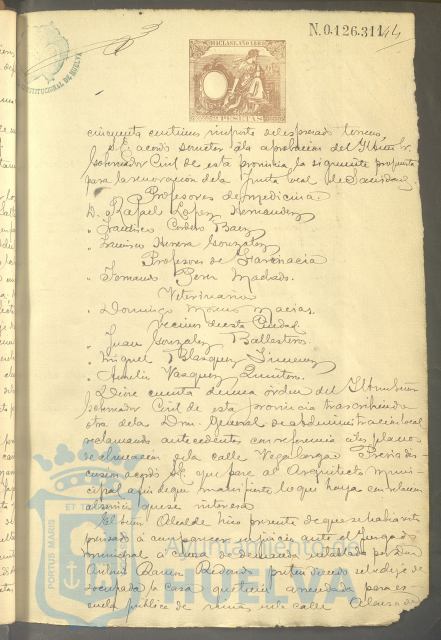 N. 0.126.311
44
AÑO 1889
PESETAS
cincuenta centimos importe del espresado terreno.
S. E. acordó someter á la aprobacion del Iltmo. Sr.
Gobernador Civil de esta provincia la siguiente propuesta
para la renovacion de la Junta local de Sanidad
Profesores de medicina
D. Rafael Lopez Hernandez
" Francisco Cordero Baez
" Francisco Herrera Gonzalez
Profesores de Farmacia
" Fernando Perez Machado.
Veterinario
" Domingo Macias.
Vecinos de esta Ciudad
" Juan Gonzalez Ballesteros
" Miguel Blazquez Jimenez
" Aurelio Vazquez
Dióse cuenta de una órden del Iltmo. Señor
Gobernador Civil de esta provincia transcribiendo
otra de la Dion. General de administracion local
reclamando antecedentes con referencia á los planos
de la calle Vegalarga. Previa dis-
cusion acordó S. E. que pase al Arquitecto muni-
cipal á fin de que manifieste lo que haya con relacion
al servicio que se interesa
El Señor Alcalde hizo presente de que se habia visto
precisado á comparecer en juicio ante el Juzgado
municipal á causa de demanda entablada por Don
Antonio Ramon Redondo pretendiendo se le deje de-
socupada la casa que tiene arrendada para es-
cuela publica de niñas en la calle Alonso de
PORTUS MARIS ET TERRÆ
Ayuntamiento de
HUELVA